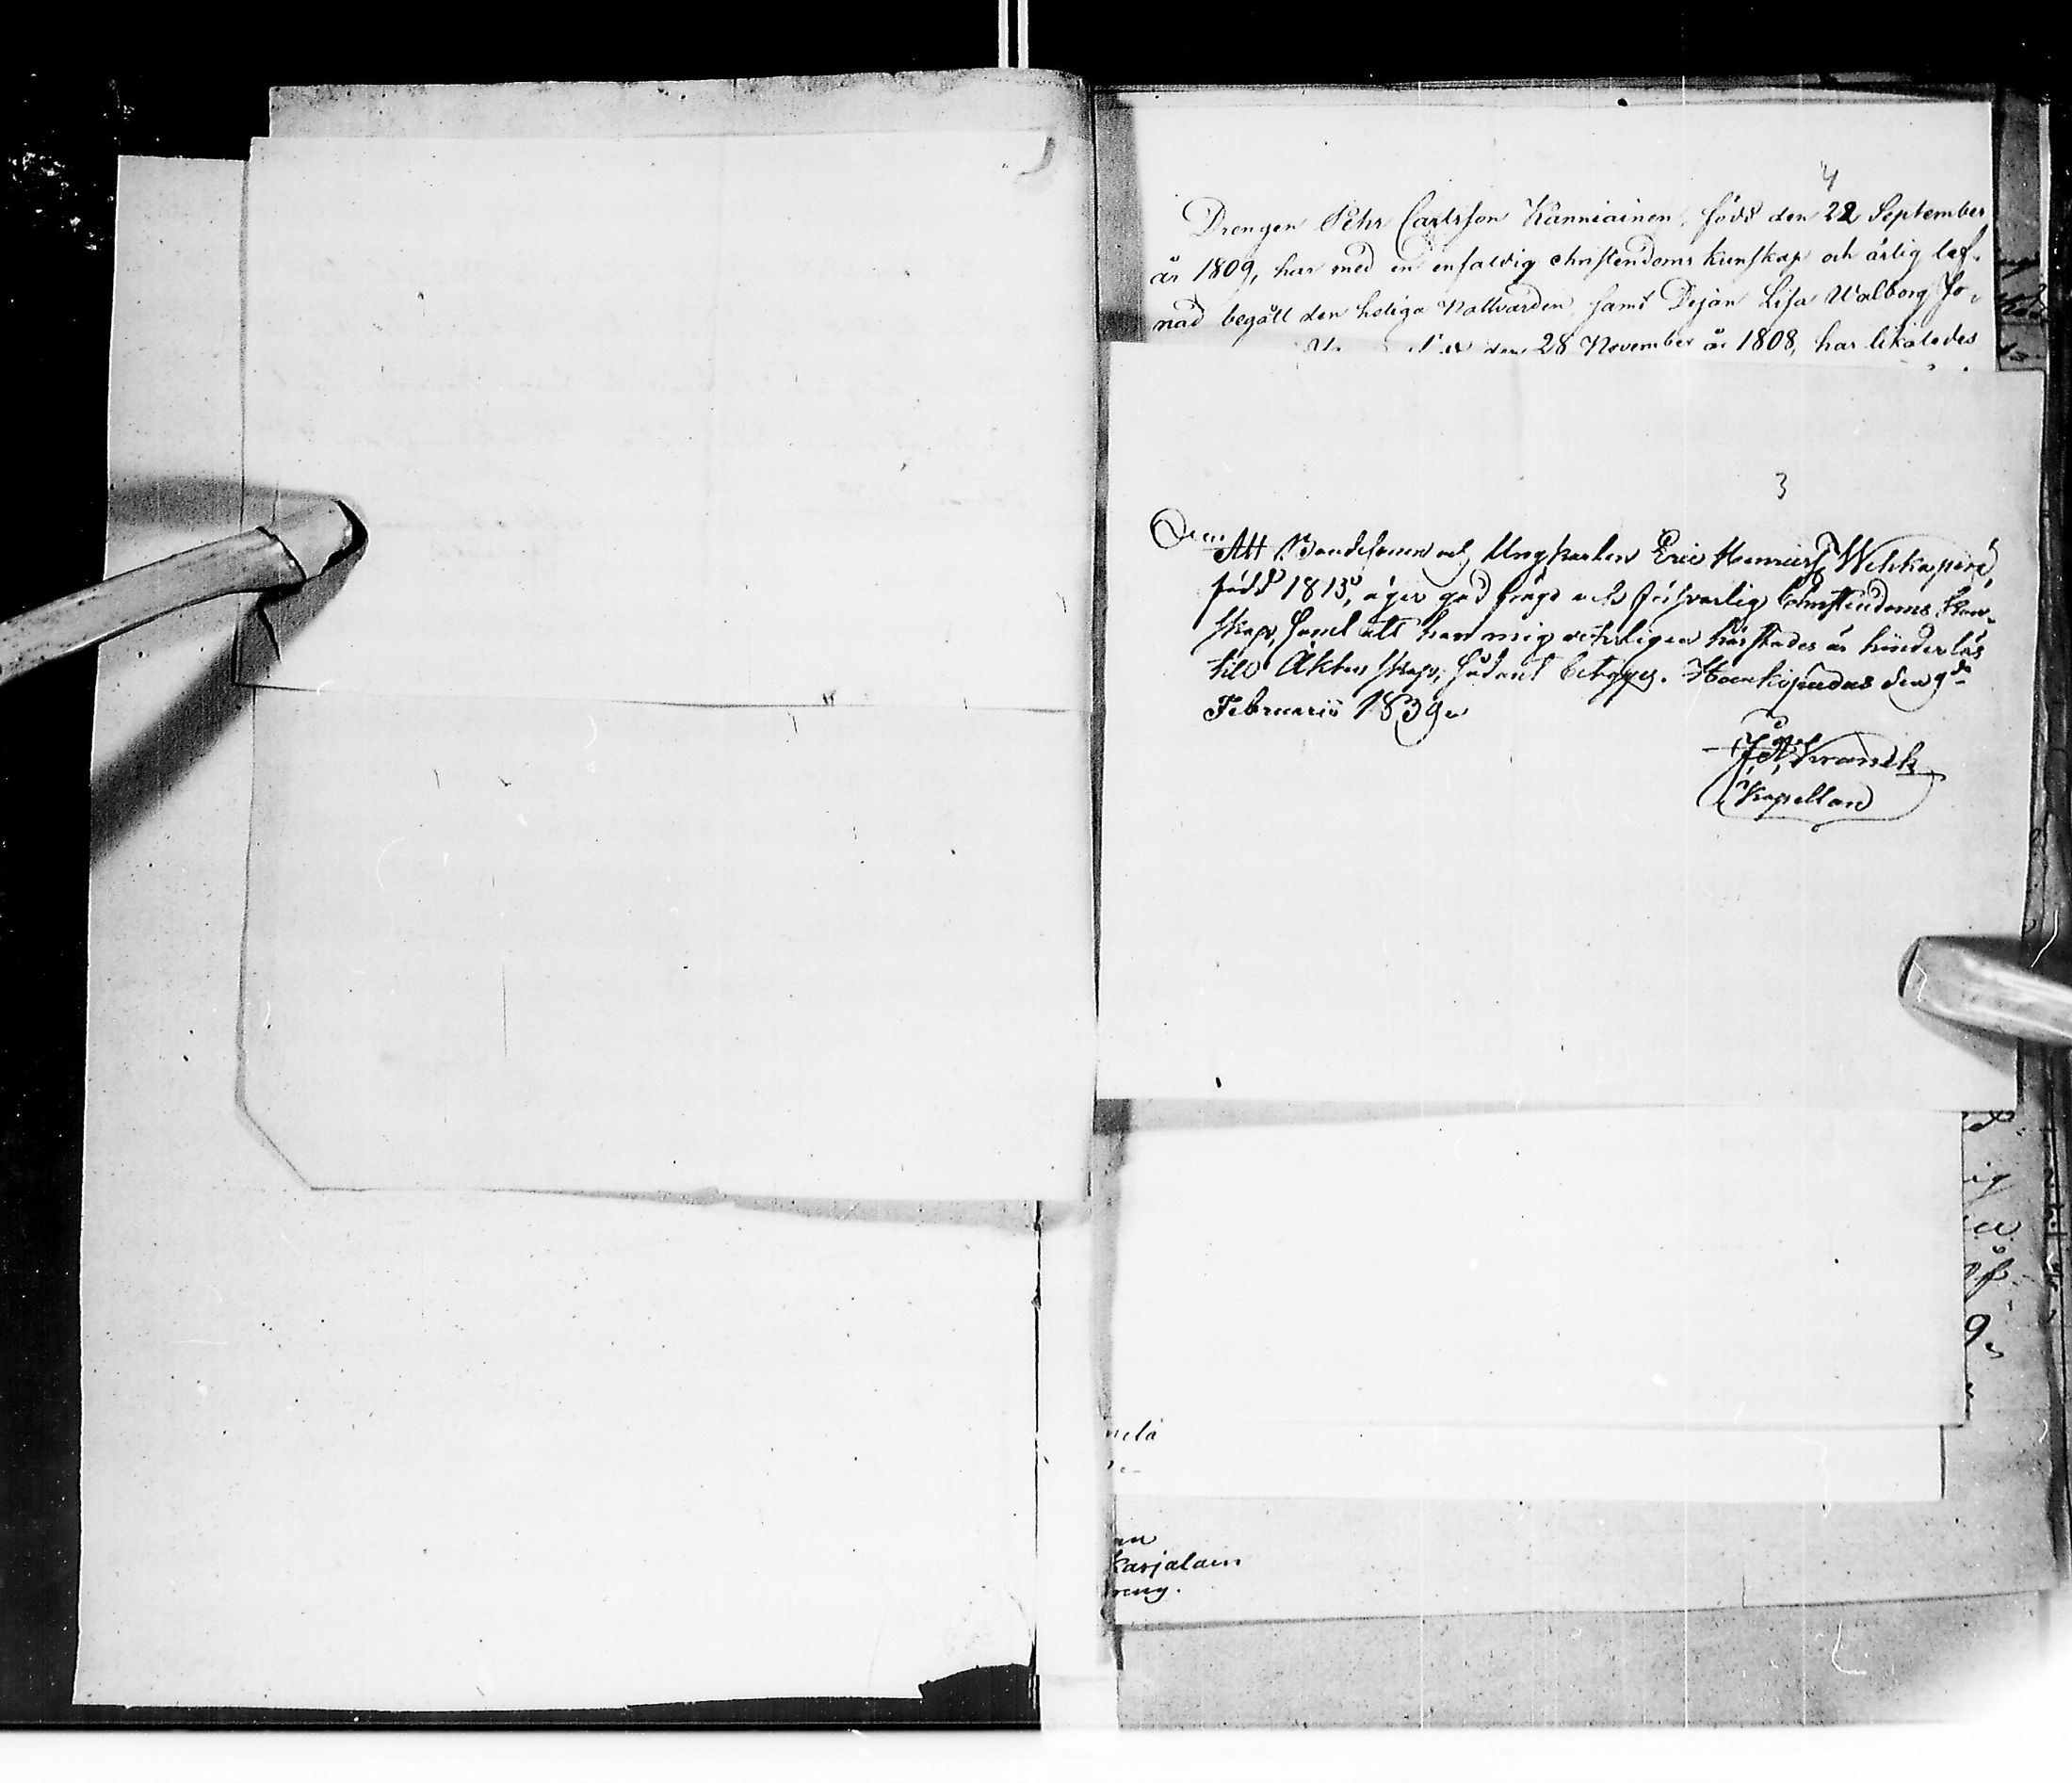 4
Drengen Pehr Carlsson Känniäinen, född den 22 September
år 1809, har med en enfaldig christendoms kunskap och ärlig lef-
nad begått den heliga Nattvarden, samt Pigan Lisa Walborg Jo-
den 28 November år 1808, har likaledes
3
Att Bondesonen och Ungkarlen Eric Henricss. Wehkaperä,
född 1813, äger god frägd och försvarlig Christendoms kun-
skap, samt att han mig veterligen härstädes är hinderlös
till Äktenskap, sådant betygas. Haukipudas den 9de
Februarii 1839.
J. A. Franck
Kapellan
ig
9.
nelä
an
Karjalain
reng.